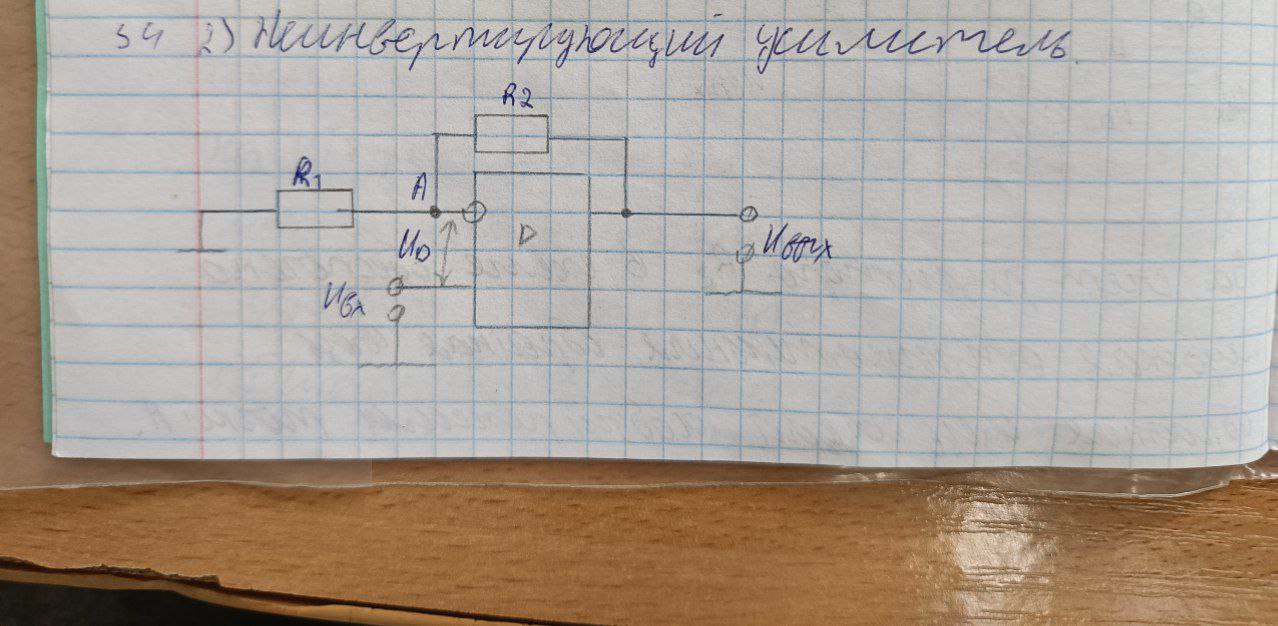 34 2) Неинвертирующий усилитель.
R2
R1
A
D
U0
Uвых
Uвх